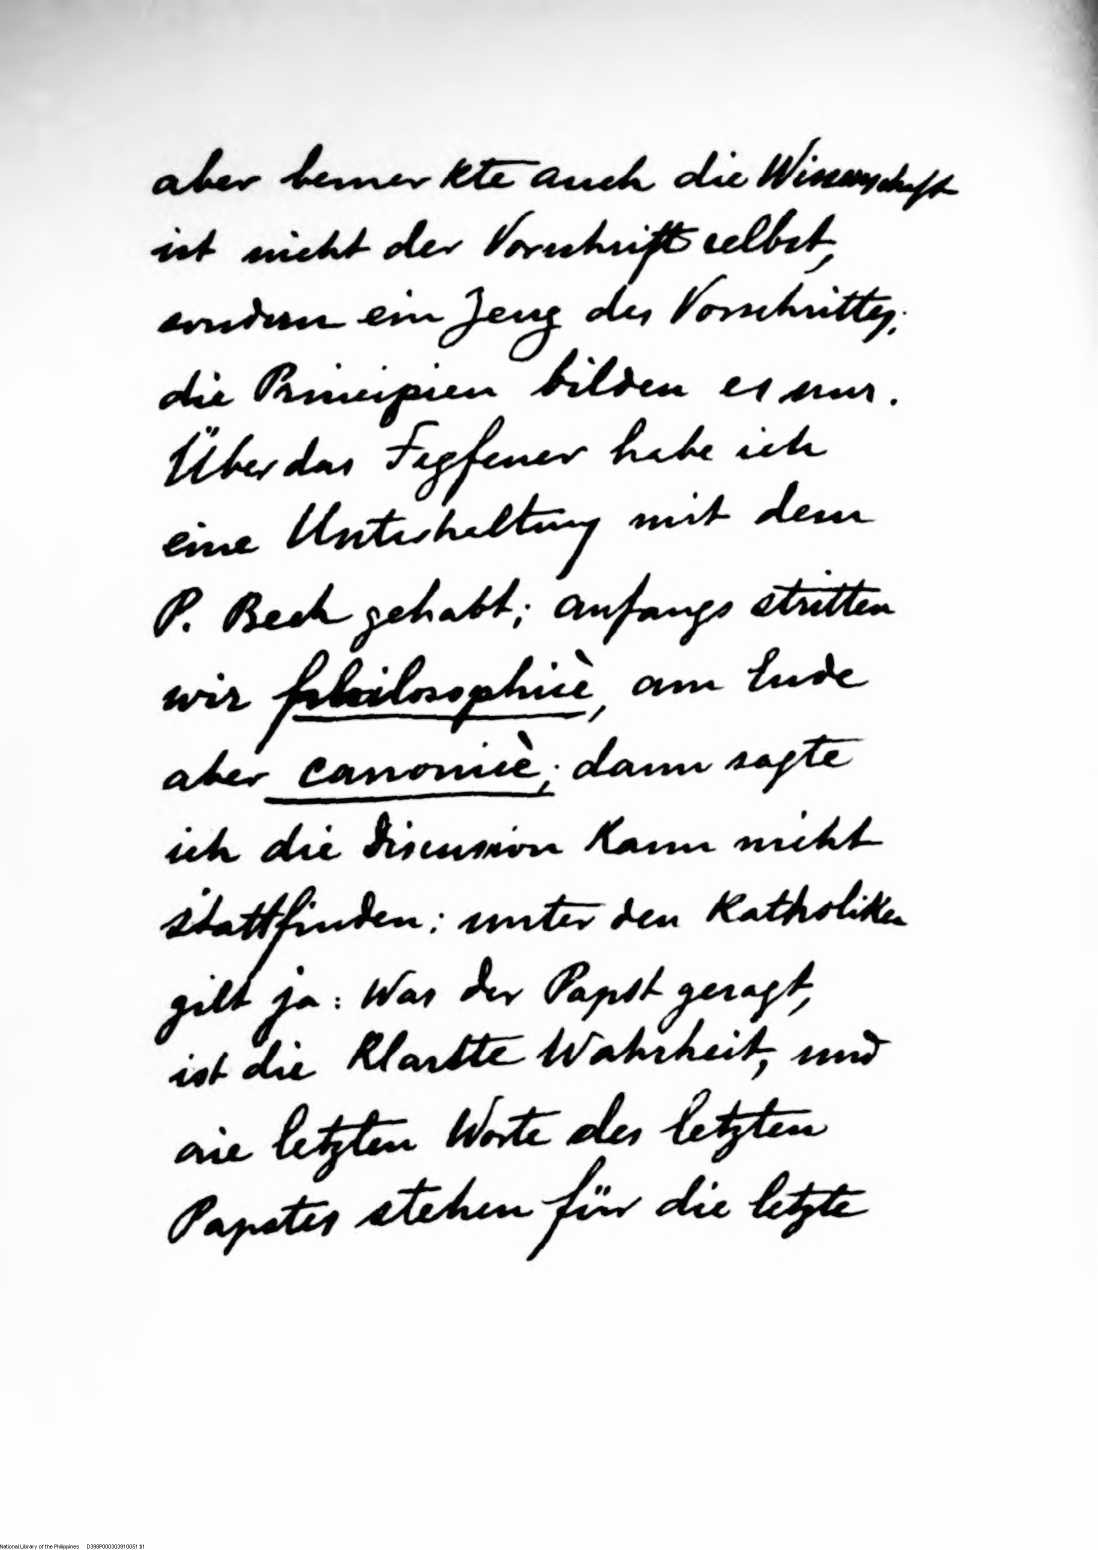 aber bemerkte auch die Wissenschaft
ist nicht der Vorschrift selbst,
sondern ein Zeug des Vorschrittes;
die Principien bilden es nur.
Über das Fegfeuer habe ich
eine Unterhaltung mit dem
P. Beck gehabt; anfangs stritten
wir philosophicè, am Ende
aber canonicè; dann sagte
ich die Discussion kann nicht
stattfinden: unter den Katholiken
gilt ja: Was der Papst gesagt,
ist die klarste Wahrheit, und
die letzten Worte des letzten
Papstes stehen für die letzte
National Library of the Philippines